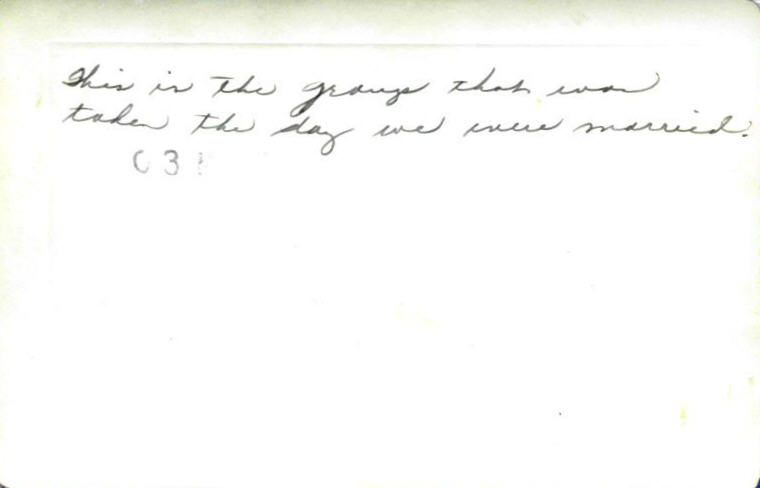 This is the group that was
taken the day we were married.
03